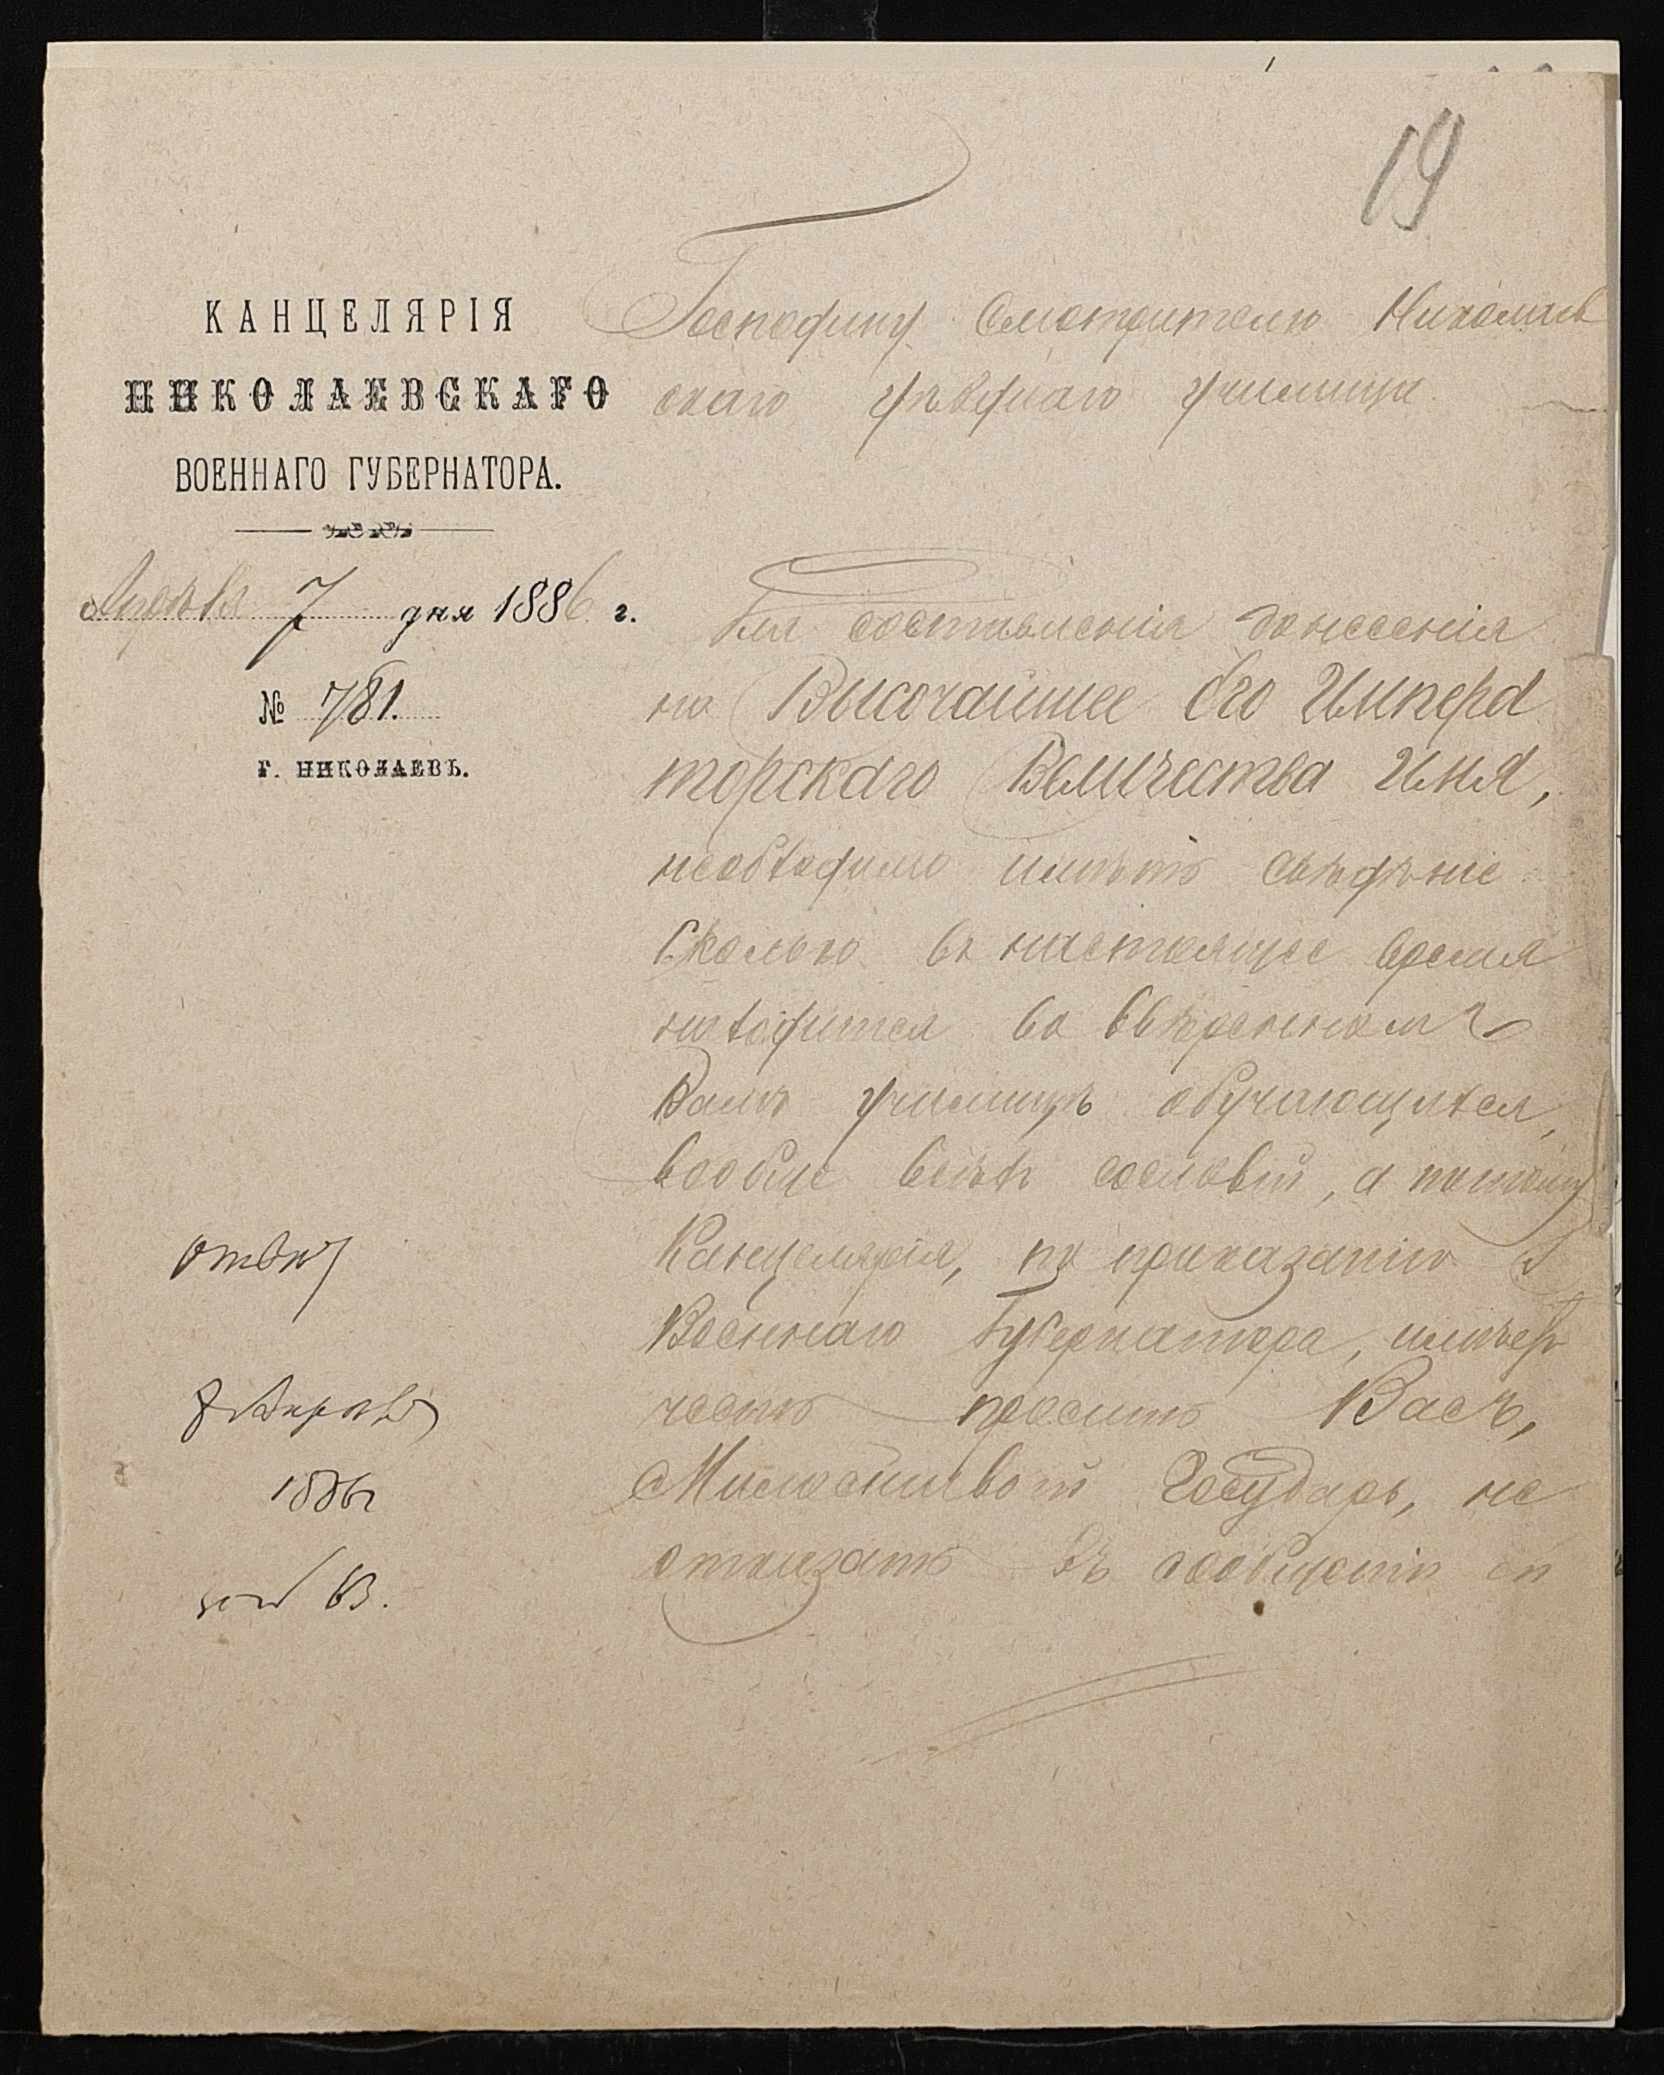 19
КАНЦЕЛЯРІЯ
НИКОЛАЕВСКАГО
ВОЕННАГО ГУБЕРНАТОРА.
Апрѣля 7 дня 1886 г.
№ 781.
г. НИКОЛАЕВЪ.
Господину Смотрителю Николаев
скаго уѣзднаго училища.
Для составленія донесенія
на Высочайшее Его Импера
торскаго Величества Имя,
необходимо имѣть свѣдѣніе
сколько въ настоящее время
находится во ввѣренномъ
Вамъ училищѣ обучающихся,
вообще всѣхъ сословій, а потому
Канцелярія, по приказанію Г.
Военнаго Губернатора, имѣетъ
честь просить Васъ,
Милостивый Государь, не
отказать въ сообщеніи ей
8 Апрѣля
1886 г
63.